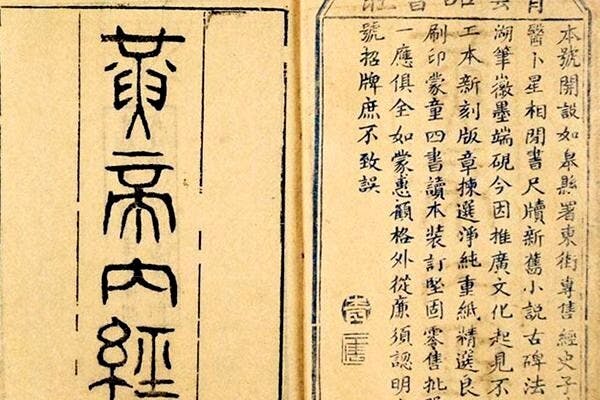 本號開設如臯縣署東街專售經史子
醫卜星相閒書尺牘新舊小說古碑法
湖筆徽墨端硯今因推廣文化起見不
工本新刻版章揀選淨純重紙精選良
刷印蒙童四書讀本裝訂堅固零售批
一應俱全如蒙惠顧格外從廉須認明
號招牌庶不致誤
黃帝內經